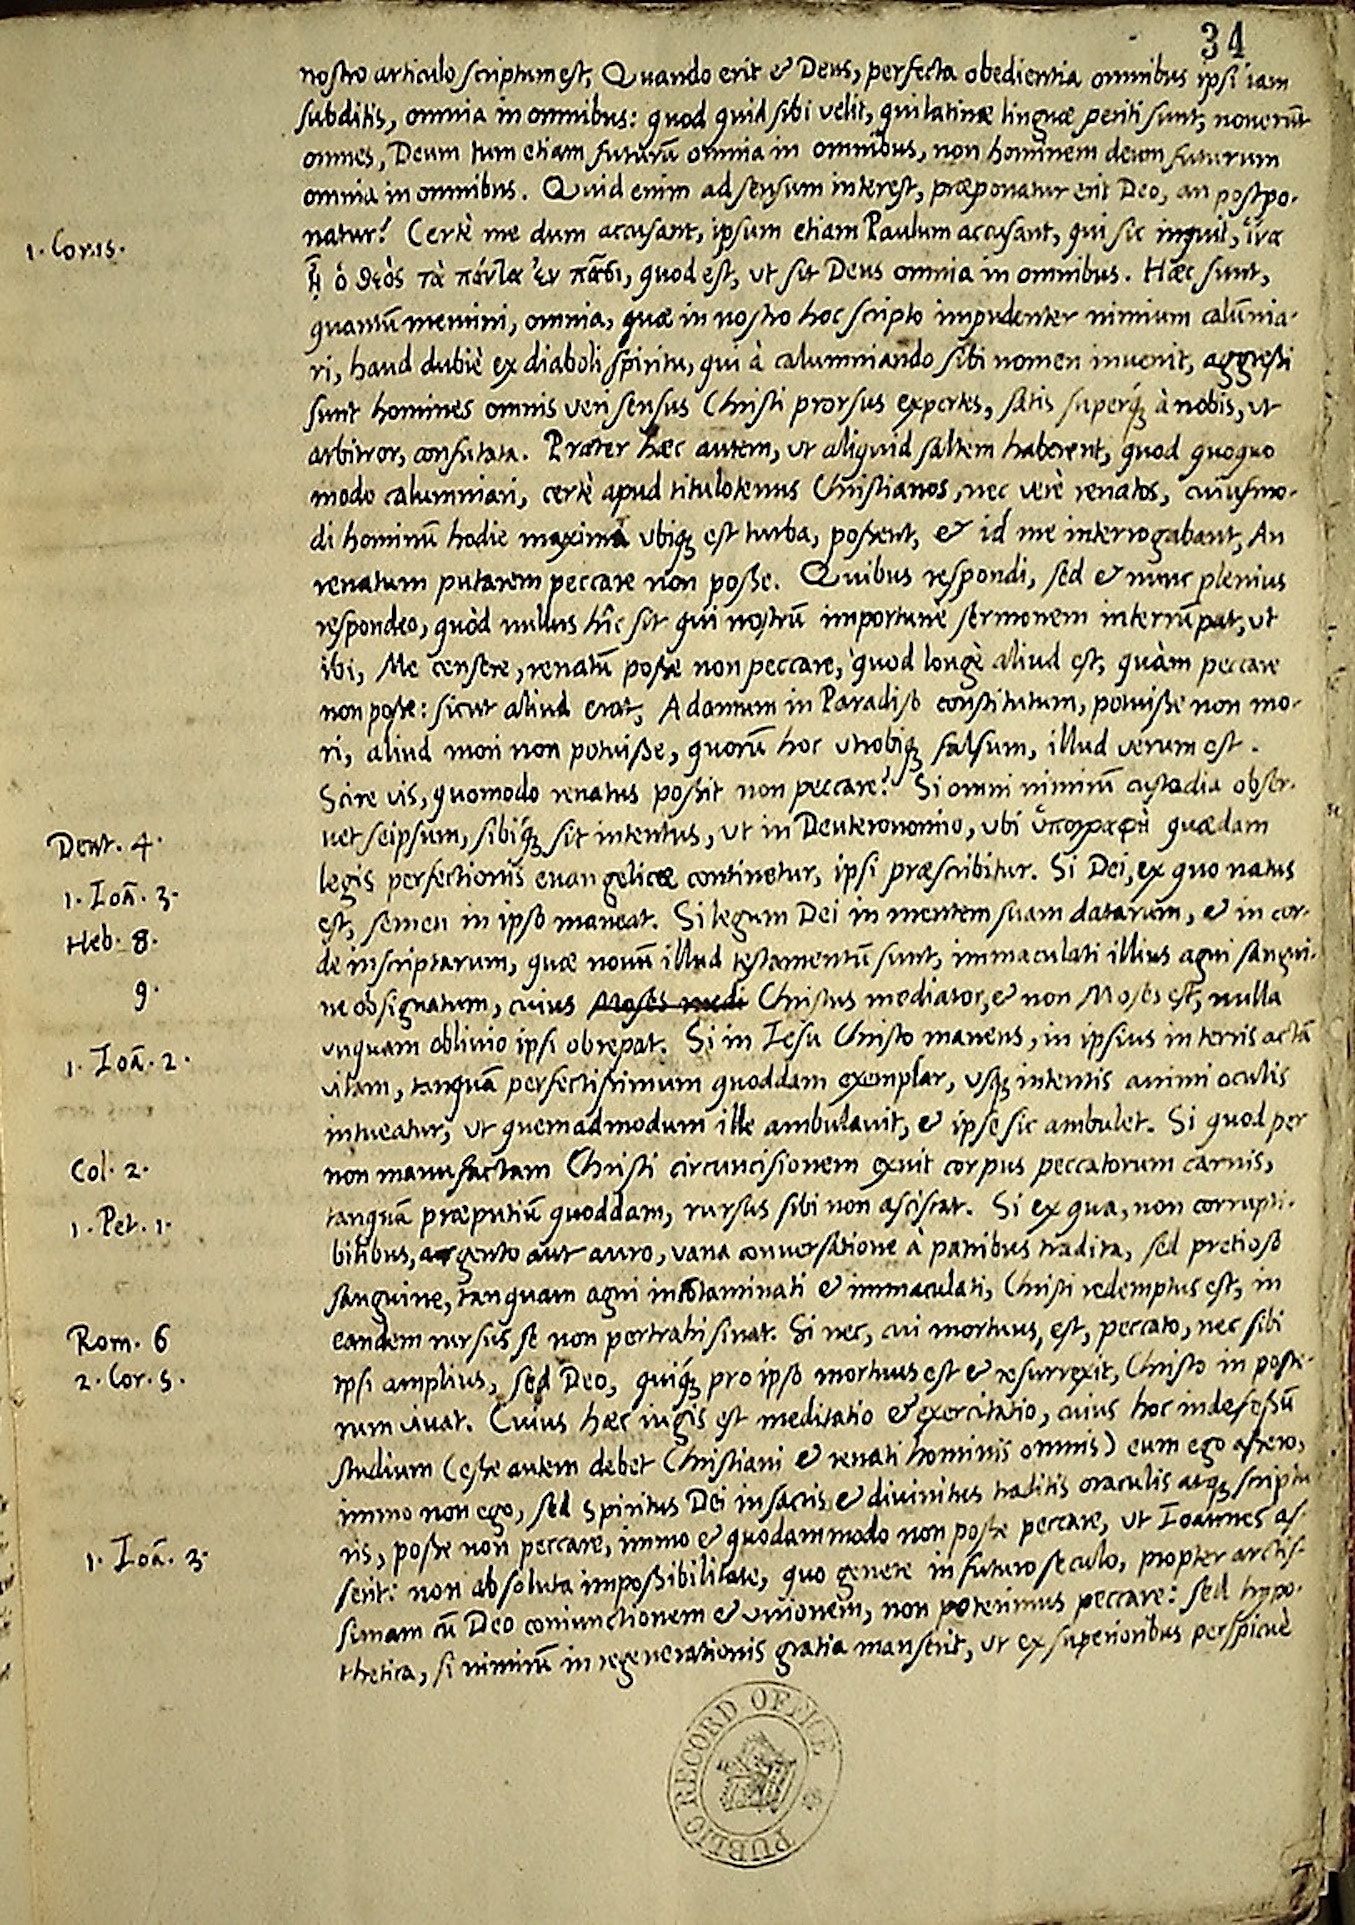 34
nostro articulo scriptum est, Quando erit & Deus, perfecta obedientia omnibus ipsi iam
subditis, omnia in omnibus: quod quid sibi velit, qui latinæ linguæ periti sunt, noverũt
omnes, Deum tum etiam futurũ omnia in omnibus, non hominem deum futurum
omnia in omnibus. Quid enim ad sensum interest, præponatur erit Deo, an postpo-
natur? Certè me dum accusant, ipsum etiam Paulum accusant, qui sic inquit, ἵνα
1. Cor. 15.
ᾖ ὁ θεὸς τὰ πάντα ἐν πᾶσι, quod est, ut sit Deus omnia in omnibus. Hæc sunt,
quantũ memini, omnia, quæ in nostro hoc scripto impudenter nimium calũnia-
ri, haud dubiè ex diaboli spiritu, qui à calumniando sibi nomen invenit, aggressi
sunt homines omnis veri sensus Christi prorsus expertes, satis superq́; à nobis, ut
arbitror, confutata. Præter hæc autem, ut aliquid saltem haberent, quod quoquo
modo calumniari, certè apud titulotenus Christianos, nec verè renatos, cuiusmo-
di hominũ hodie maxima ubiq; est turba, possent, & id me interrogabant, An
renatum putarem peccare non posse. Quibus respondi, sed & nunc plenius
respondeo, quòd nullus hîc sit qui nostrũ importunè sermonem interrũpat, ut
ibi, Me censere, renatũ posse non peccare, quod longè aliud est, quàm peccare
non posse: sicut aliud erat, Adamum in Paradiso constitutum, potuisse non mo-
ri, aliud mori non potuisse, quorũ hoc utrobiq; falsum, illud verum est.
Scire vis, quomodo renatus possit non peccare? Si omni nimirũ custodia obser-
vet seipsum, sibíq; sit intentus, ut in Deuteronomio, ubi ὑπογραφὴ quædam
Deut. 4.
legis perfectionis euangelicæ continetur, ipsi præscribitur. Si Dei, ex quo natus
1. Ioã. 3.
est, semen in ipso maneat. Si legum Dei in mentem suam datarum, & in cor-
Heb. 8.
de inscriptarum, quæ novũ illud testamentũ sunt, immaculati illius agni sangui-
9.
ne obsignatum, cuius Moses medi Christus mediator, & non Moses est, nulla
unquam oblivio ipsi obrepat. Si in Iesu Christo manens, in ipsius in terris actã
1. Ioã. 2.
vitam, tanquã perfectissimum quoddam exemplar, usq; intentis animi oculis
intueatur, ut quemadmodum ille ambulavit, & ipse sic ambulet. Si quod per
non manufactam Christi circuncisionem exuit corpus peccatorum carnis,
Col. 2.
tanquã præputiũ quoddam, rursus sibi non asciscat. Si ex qua, non corrupti-
1. Pet. 1.
bilibus, argento aut auro, vana conversatione à patribus tradita, sed pretioso
sanguine, tanquam agni incõtaminati & immaculati, Christi redemptus est, in
eandem rursus se non pertrahi sinat. Si nec, cui mortuus, est, peccato, nec sibi
Rom. 6
ipsi amplius, sed Deo, quíq; pro ipso mortuus est & resurrexit, Christo in poste-
2. Cor. 5.
rum vivat. Cuius hæc iugis est meditatio & exercitatio, cuius hoc indefessũ
studium (esse autem debet Christiani & renati hominis omnis) eum ego assero,
immo non ego, sed Spiritus Dei in sacris & divinitus traditis oraculis atq; scriptu
ris, posse non peccare, immo & quodammodo non posse peccare, ut Ioannes as-
serit: non absoluta impossibilitate, quo genere in futuro seculo, propter arctis-
1. Ioã. 3.
simam cũ Deo coniunctionem & unionem, non poterimus peccare: sed hypo-
thetica, si nimirũ in regenerationis gratia manserit, ut ex superioribus perspicuè
PUBLIC RECORD OFFICE